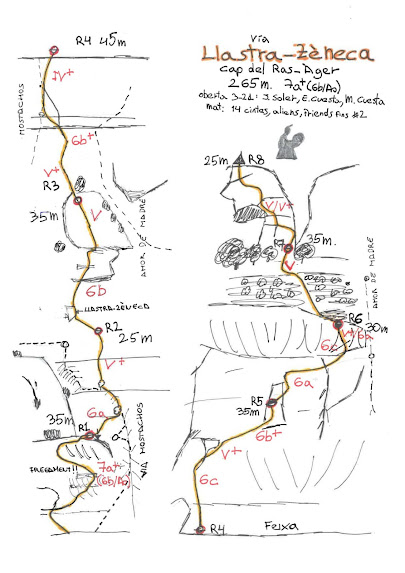 Via
Llastra-Zèneca
cap del Ras-Ager
265m. 7a+(6b/Ao)
oberta 3-2d: J. Soler, E. Cuesta, M. Cuesta
mat: 14 cintas, aliens, friends fins #2
R4 45m
IV+
MOSTACHOS
6b+
V+
R3
35m
V
AMOR DE MADRE
6b
LLASTRA-ZÈNECA
R2
25m
V+
35m
6a
R1
FREGAMENT!!
7a+
(6b/Ao)
VIA MOSTACHOS
25m
R8
V/V+
R7
35m.
V
AMOR DE MADRE
R6
30m
6a
6a
R5
35m
6b+
V+
6c
R4
Feixa